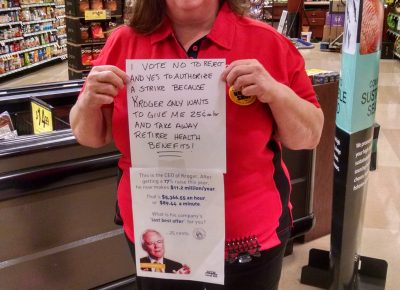 I VOTE NO TO REJECT
AND YES TO AUTHORIZE
A STRIKE BECAUSE
KROGER ONLY WANTS
TO GIVE ME 25¢
AND TAKE AWAY
RETIREE HEALTH
BENEFITS!
This is the CEO of Kroger. After
getting a 17% raise this year,
he now makes $11.2 million/year.
That is $5,366.55 an hour
or $89.44 a minute.
What is his company's
last best offer for you?
25 cents.